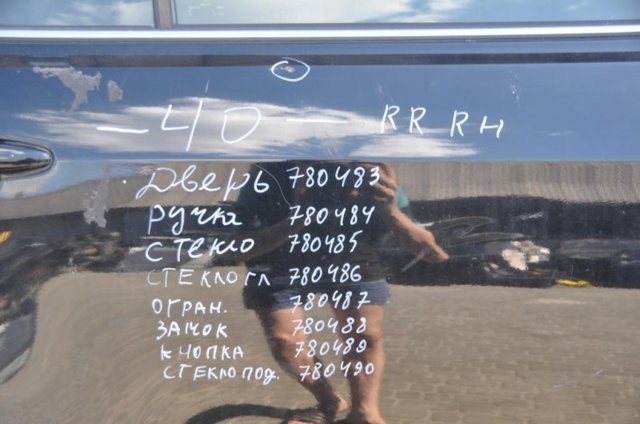 — 40 — RR RH
Дверь 780483
ручка 780484
стекло 780485
СТЕКЛО ГЛ 780486
ОГРАН. 780487
ЗАМОК 780488
КНОПКА 780489
СТЕКЛОПОД. 780490